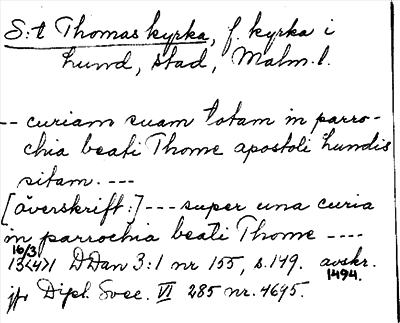 S:t Thomas kyrka, f. kyrka i
Lund, stad, Malm. l.
-- curiam suam totam in parro-
chia beati Thome apostoli Lundis
sitam. ---
[överskrift:] --- super una curia
in parrochia beati Thome ----
16/3
13<4>1 DDan 3:1 nr 155, s.149. avskr.
1494.
jfr Dipl. Svec. VI 285 nr. 4695.